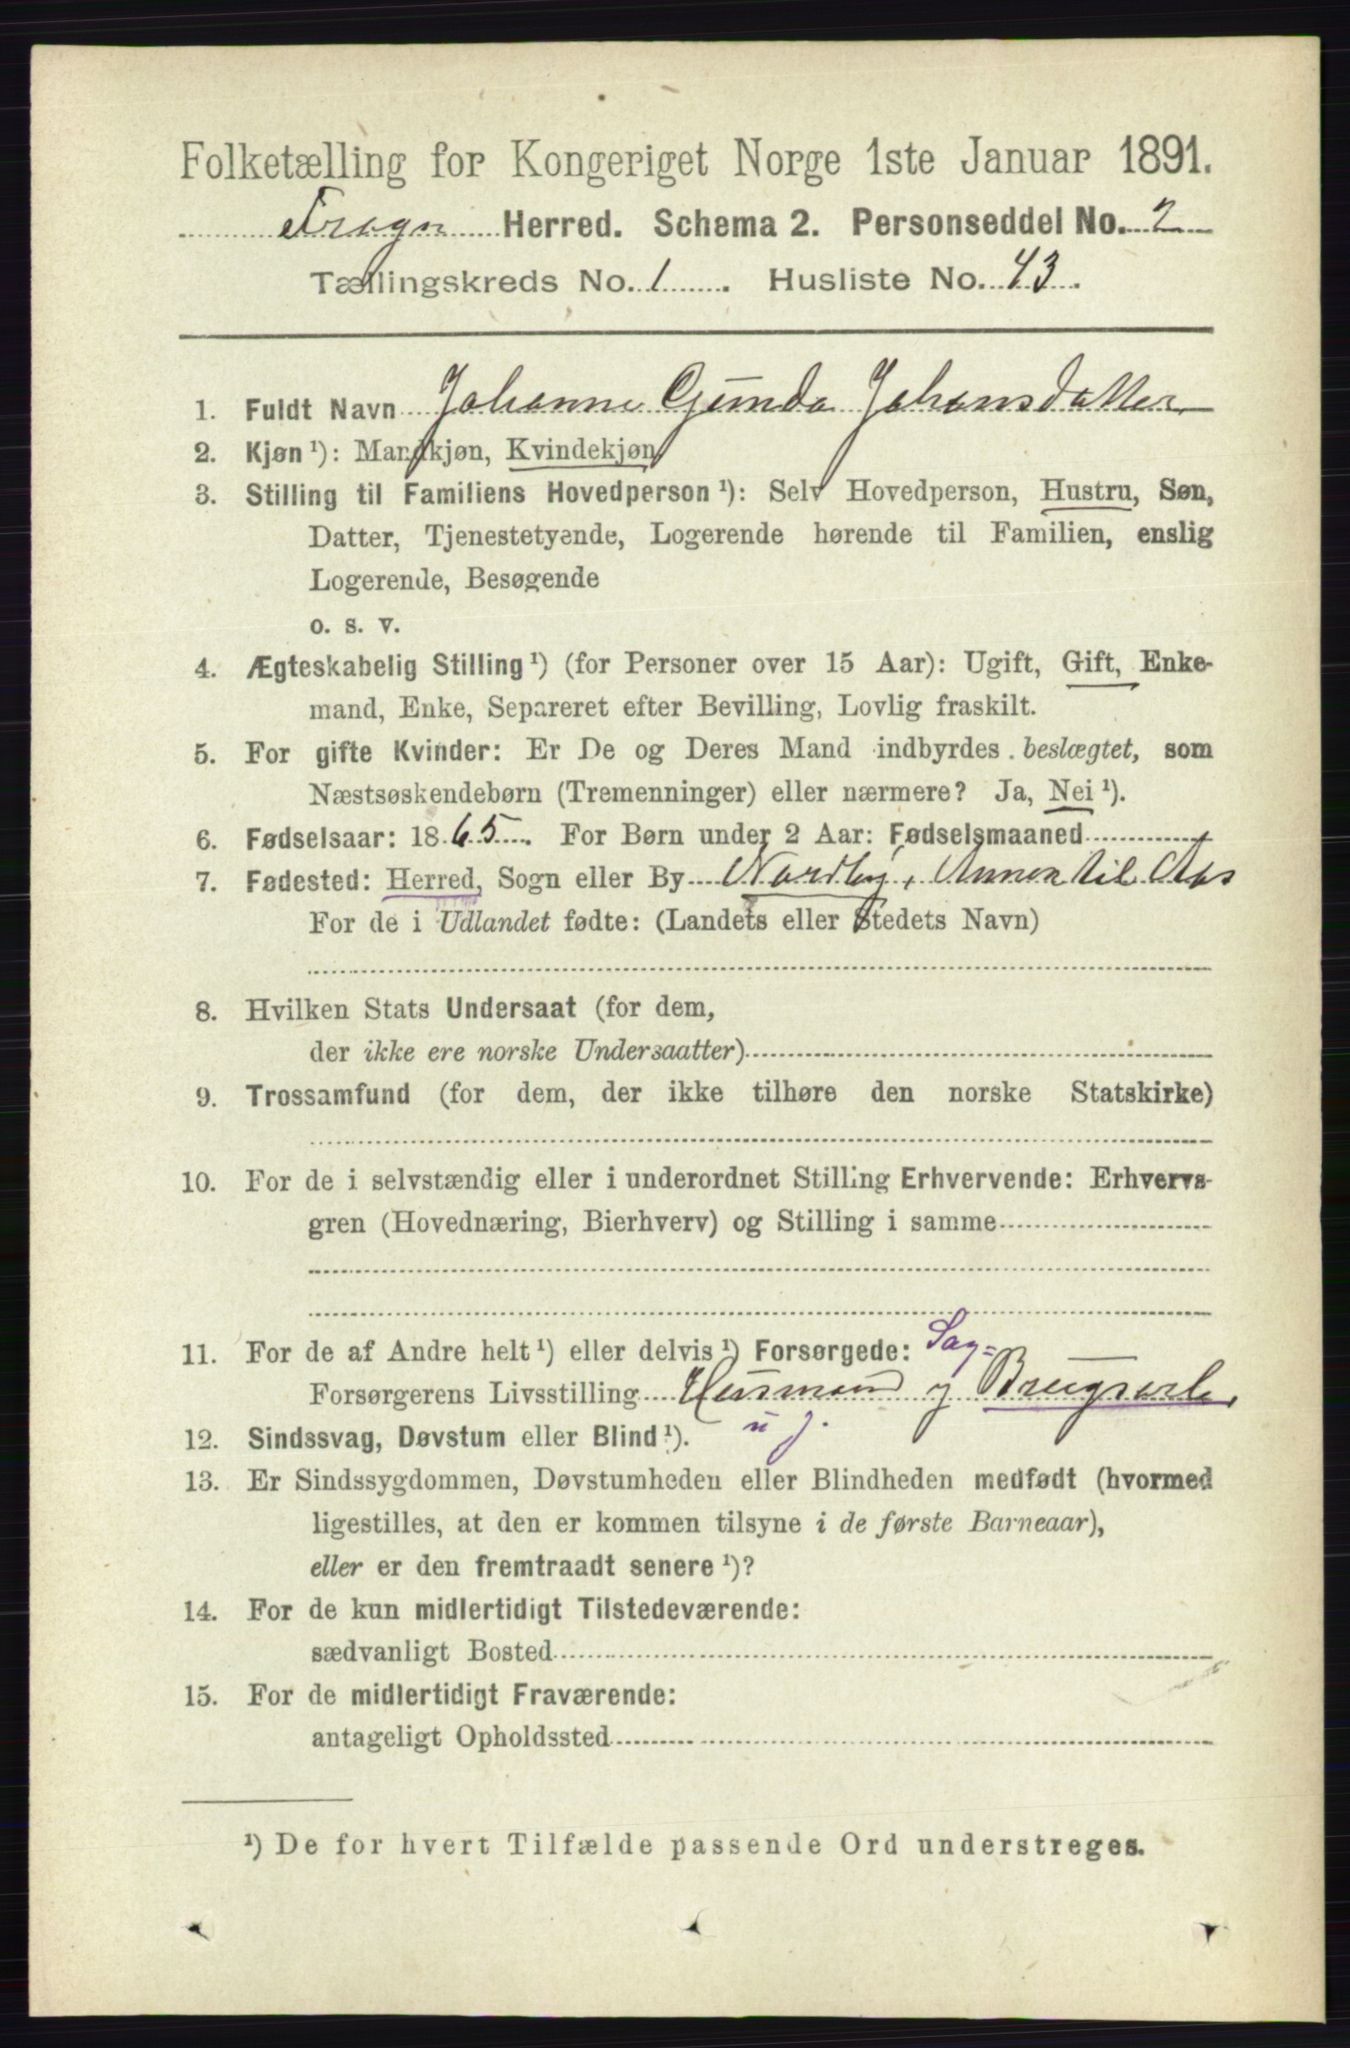 Folketælling for Kongeriget Norge 1ste Januar 1891.
Frogn Herred. Schema 2. Personseddel No. 2
Tællingskreds No. 1. Husliste No. 43.
1. Fuldt Navn Johanne Gunda Johansdatter
2. Kjøn ¹): Mandkjøn, Kvindekjøn
3. Stilling til Familiens Hovedperson ¹): Selv Hovedperson, Hustru, Søn,
Datter, Tjenestetyende, Logerende hørende til Familien, enslig
Logerende, Besøgende
o. s. v.
4. Ægteskabelig Stilling ¹) (for Personer over 15 Aar): Ugift, Gift, Enke-
mand, Enke, Separeret efter Bevilling, Lovlig fraskilt.
5. For gifte Kvinder: Er De og Deres Mand indbyrdes beslægtet, som
Næstsøskendebørn (Tremenninger) eller nærmere? Ja, Nei ¹).
6. Fødselsaar: 1865. For Børn under 2 Aar: Fødselsmaaned
7. Fødested: Herred, Sogn eller By Nordby, Annex til Aas
For de i Udlandet fødte: (Landets eller Stedets Navn)
8. Hvilken Stats Undersaat (for dem,
der ikke ere norske Undersaatter)
9. Trossamfund (for dem, der ikke tilhøre den norske Statskirke)
10. For de i selvstændig eller i underordnet Stilling Erhvervende: Erhvervs-
gren (Hovednæring, Bierhverv) og Stilling i samme
11. For de af Andre helt ¹) eller delvis ¹) Forsørgede: Sag=
Forsørgerens Livsstilling Husmand og Brugsarb.
u j.
12. Sindssvag, Døvstum eller Blind ¹).
13. Er Sindssygdommen, Døvstumheden eller Blindheden medfødt (hvormed
ligestilles, at den er kommen tilsyne i de første Barneaar),
eller er den fremtraadt senere ¹)?
14. For de kun midlertidigt Tilstedeværende:
sædvanligt Bosted
15. For de midlertidigt Fraværende:
antageligt Opholdssted
¹) De for hvert Tilfælde passende Ord understreges.